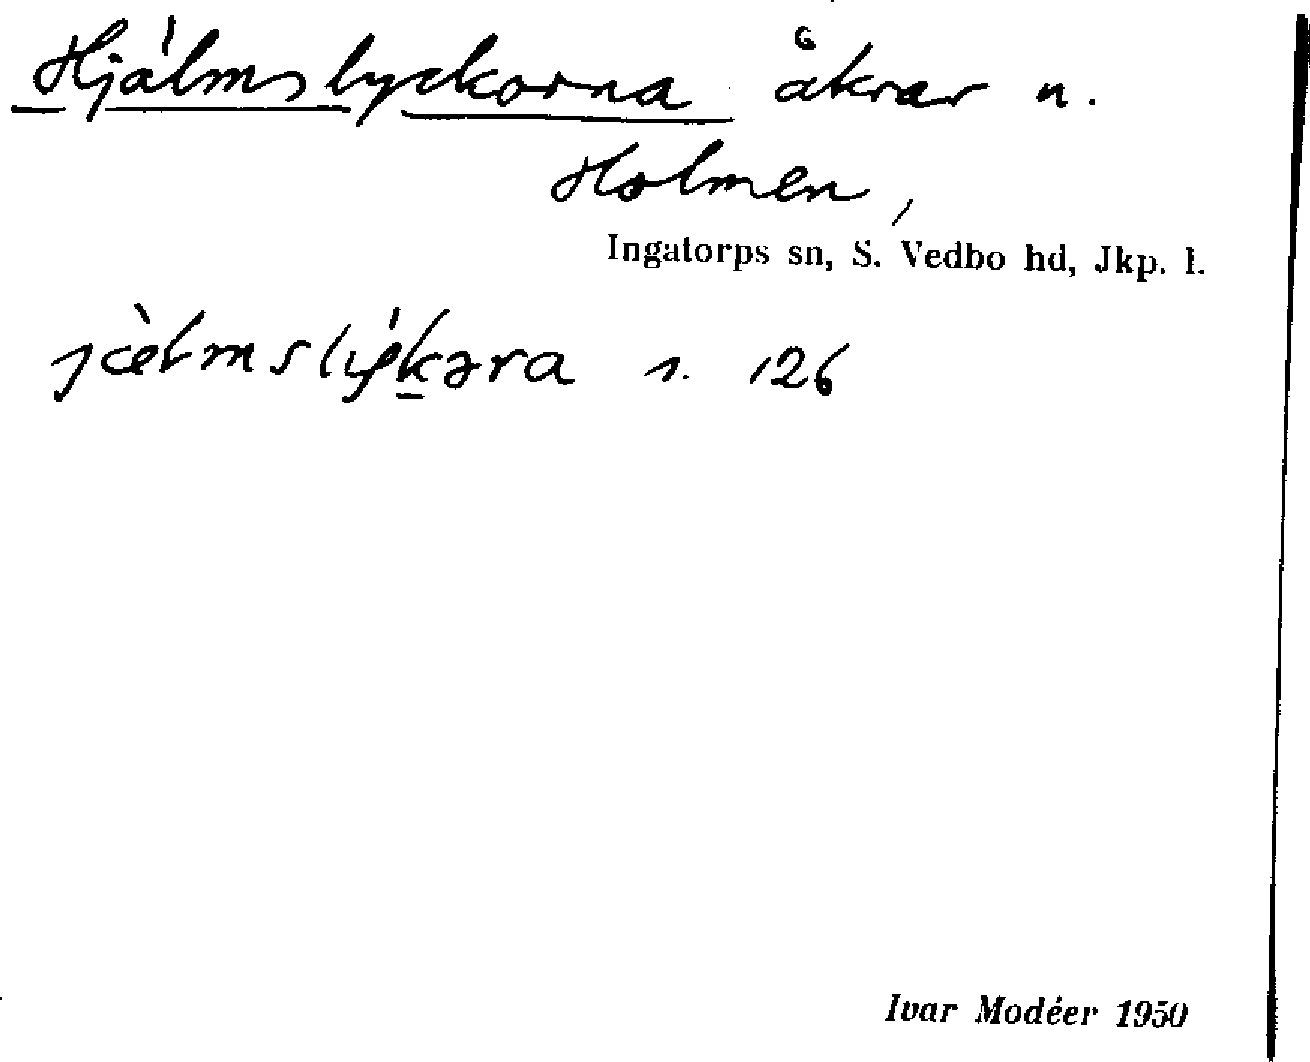 Hjälmslyckorna åkrar n.
Holmen,
Ingatorps sn, S. Vedbo hd, Jkp. l.
jæ̀lmslýk̠əra s. 126
Ivar Modéer 1950